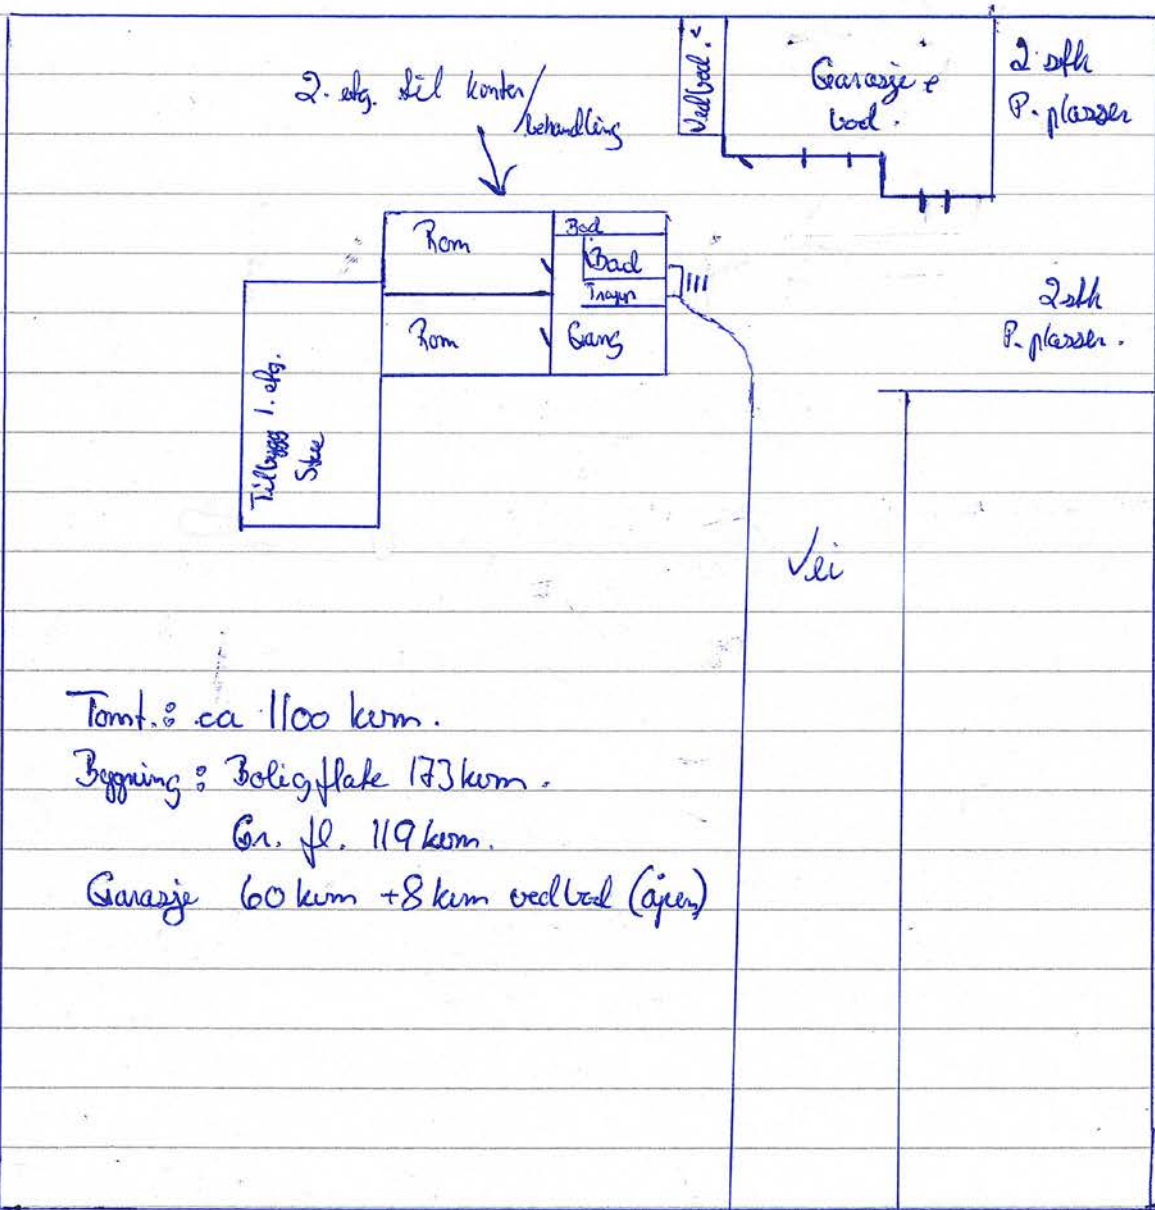 2. etg. til kontor/
behandling
Vedbod.
Garasje &
bod.
2 stk
P. plasser
Rom
Bod
Bad
Trapp
Rom
Gang
2 stk
P. plasser.
Tilbygg 1. etg.
Stue
Vei
Tomt.: ca 1100 kvm.
Bygning: Boligflate 173 kvm.
Gr. fl. 119 kvm.
Garasje 60 kvm + 8 kvm vedbod (åpen)